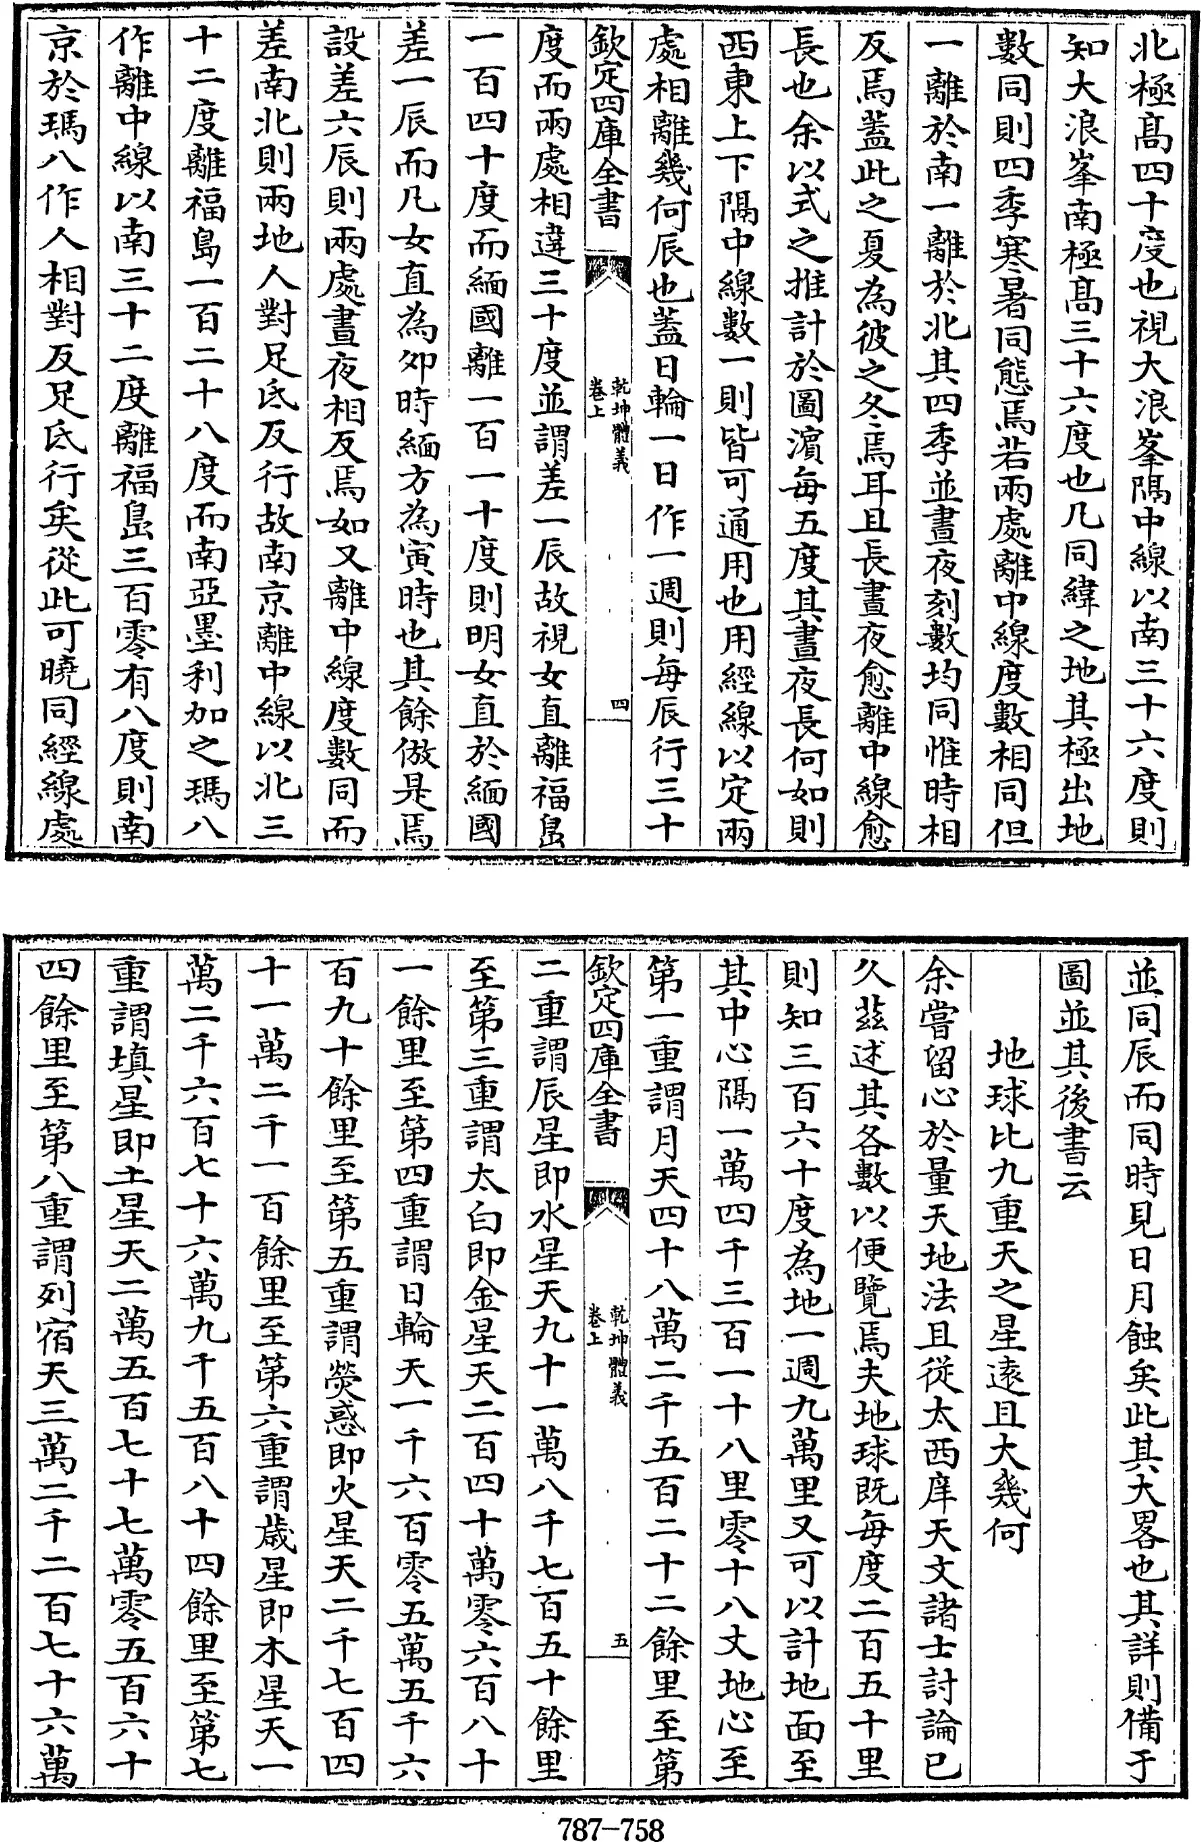 北極髙四十度也視大浪峯隔中線以南三十六度則
知大浪峯南極髙三十六度也凡同緯之地其極出地
數同則四季寒暑同態焉若兩處離中線度數相同但
一離於南一離於北其四季並晝夜刻數均同惟時相
反焉葢此之夏為彼之冬焉耳且長晝夜愈離中線愈
長也余以式之推計於圖濵每五度其晝夜長何如則
西東上下隔中線數一則皆可通用也用經線以定兩
處相離幾何辰也葢日輪一日作一週則每辰行三十
欽定四庫全書
乾坤體義
卷上
四
度而兩處相違三十度並謂差一辰故視女直離福島
一百四十度而緬國離一百一十度則明女直於緬國
差一辰而凡女直為夘時緬方為寅時也其餘倣是焉
設差六辰則兩處晝夜相反焉如又離中線度數同而
差南北則兩地人對足底反行故南京離中線以北三
十二度離福島一百二十八度而南亞墨利加之瑪八
作離中線以南三十二度離福島三百零有八度則南
京於瑪八作人相對反足底行矣從此可曉同經線處
並同辰而同時見日月蝕矣此其大畧也其詳則備于
圖並其後書云
地球比九重天之星逺且大幾何
余嘗留心於量天地法且從太西庠天文諸士討論已
久兹述其各數以便覽焉夫地球既每度二百五十里
則知三百六十度為地一週九萬里又可以計地面至
其中心隔一萬四千三百一十八里零十八丈地心至
第一重謂月天四十八萬二千五百二十二餘里至第
欽定四庫全書
乾坤體義
卷上
五
二重謂辰星即水星天九十一萬八千七百五十餘里
至第三重謂太白即金星天二百四十萬零六百八十
一餘里至第四重謂日輪天一千六百零五萬五千六
百九十餘里至第五重謂熒惑即火星天二千七百四
十一萬二千一百餘里至第六重謂歲星即木星天一
萬二千六百七十六萬九千五百八十四餘里至第七
重謂填星即土星天二萬五百七十七萬零五百六十
四餘里至第八重謂列宿天三萬二千二百七十六萬
787-758